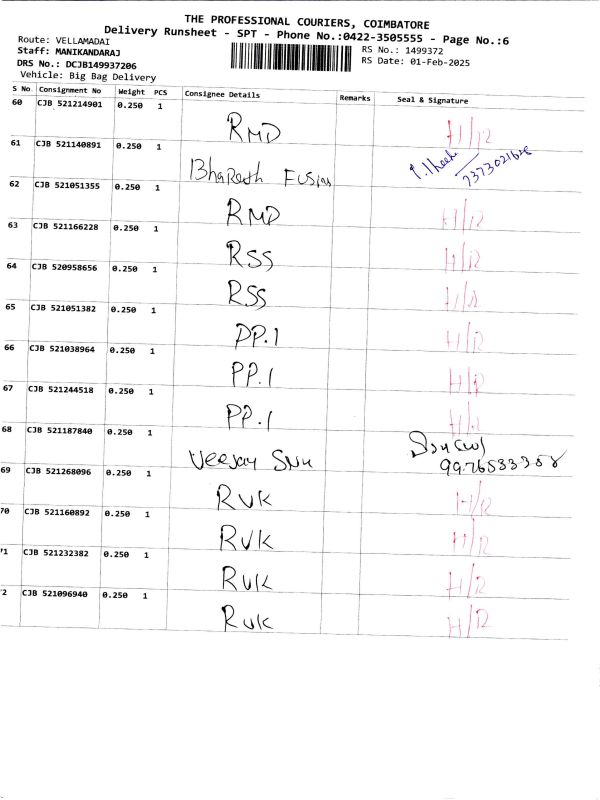 THE PROFESSIONAL COURIERS, COIMBATORE
Delivery Runsheet - SPT - Phone No.:0422-3505555 - Page No.:6
Route: VELLAMADAI
Staff: MANIKANDARAJ
DRS No.: DCJB149937206
Vehicle: Big Bag Delivery
RS No.: 1499372
RS Date: 01-Feb-2025
S No Consignment No Weight PCS Consignee Details Remarks Seal & Signature
60 CJB 521214901 0.250 1 RMD H/12
61 CJB 521140891 0.250 1 Bharath Fusion
62 CJB 521051355 0.250 1 RMD H/12
63 CJB 521166228 0.250 1 RSS H/12
64 CJB 520958656 0.250 1 RSS H/12
65 CJB 521051382 0.250 1 PP.1 H/12
66 CJB 521038964 0.250 1 PP.1 H/12
67 CJB 521244518 0.250 1 PP.1 H/12
68 CJB 521187840 0.250 1 Veejay 9976533358
69 CJB 521268096 0.250 1 RVK H/12
70 CJB 521160892 0.250 1 RVK H/12
71 CJB 521232382 0.250 1 RVK H/12
2 CJB 521096940 0.250 1 RVK H/12